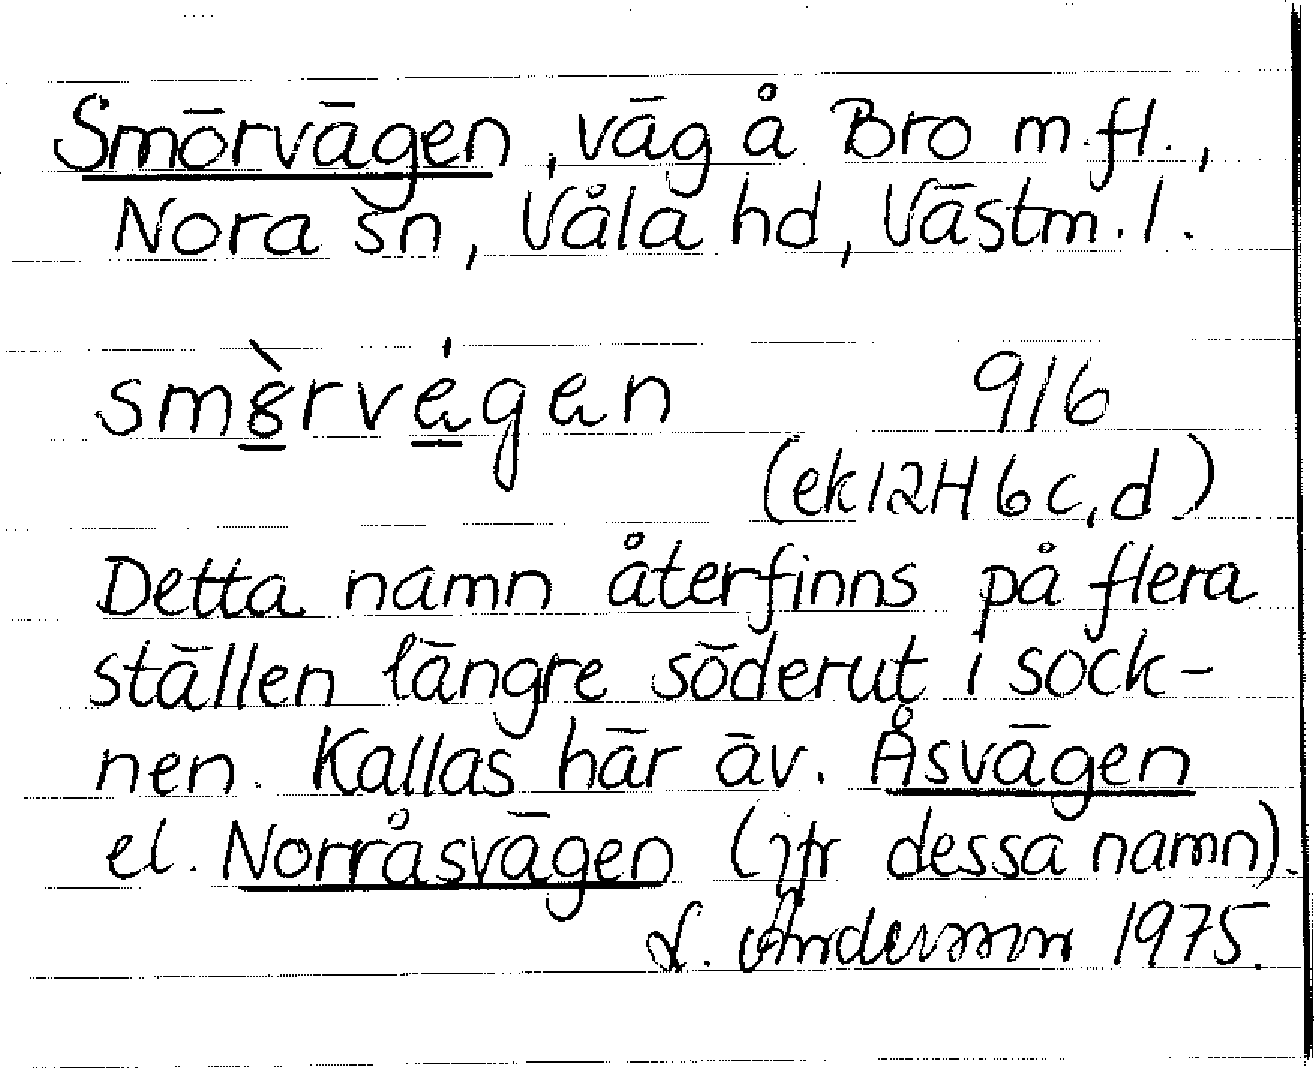 Smörvägen, väg å Bro m.fl.,
Nora sn, Våla hd, Västm. l.
916
(ek 12H 6 c, d)
Detta namn återfinns på flera
ställen längre söderut i sock-
nen. Kallas här äv. Åsvägen
el. Norråsvägen (jfr dessa namn).
L. Andersson 1975.